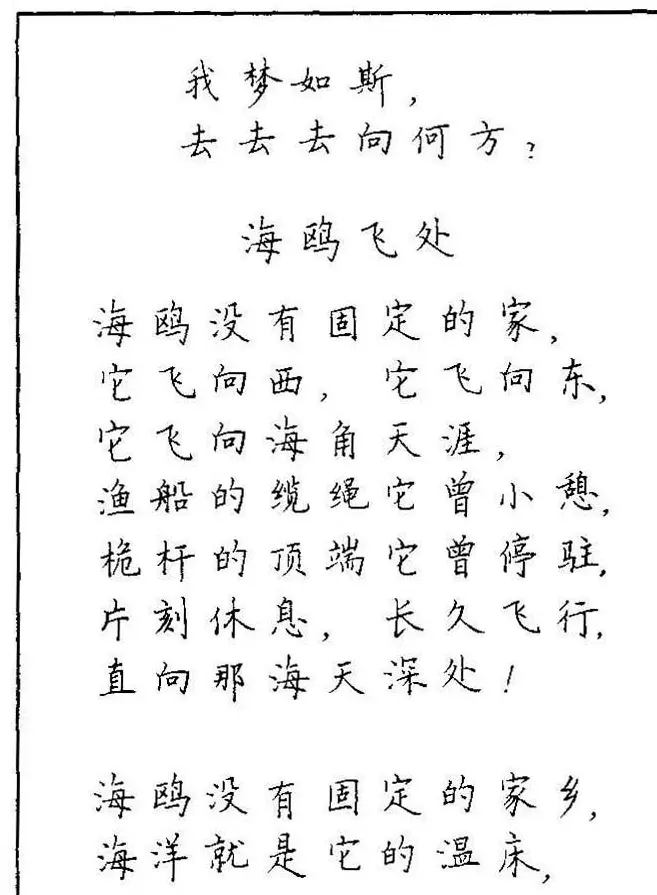 我梦如斯，
去去去向何方？
海鸥飞处
海鸥没有固定的家，
它飞向西，它飞向东，
它飞向海角天涯，
渔船的缆绳它曾小憩，
桅杆的顶端它曾停驻，
片刻休息，长久飞行，
直向那海天深处！
海鸥没有固定的家乡，
海洋就是它的温床，